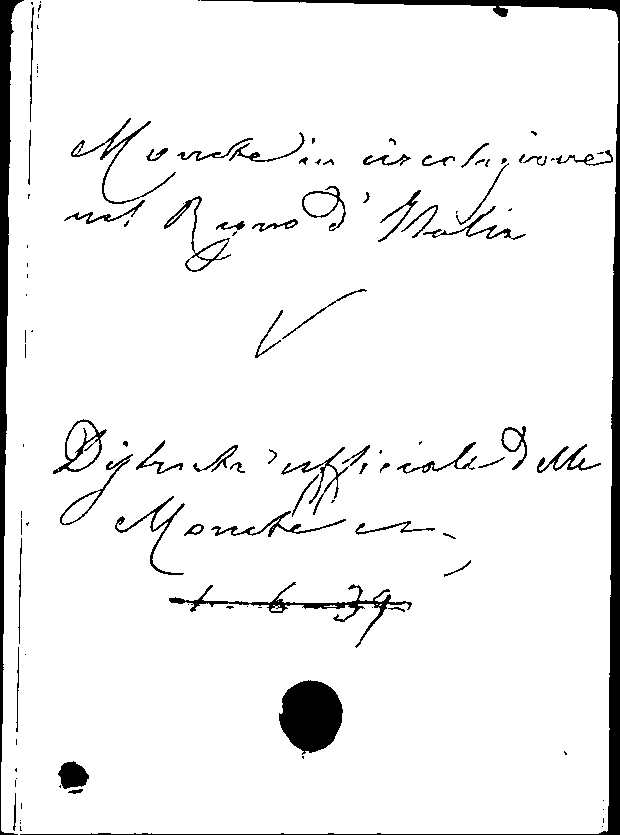 Monete in circolazione
nel Regno d'Italia
V
Distinta ufficiale delle
Monete ecc.
1. 6. 39